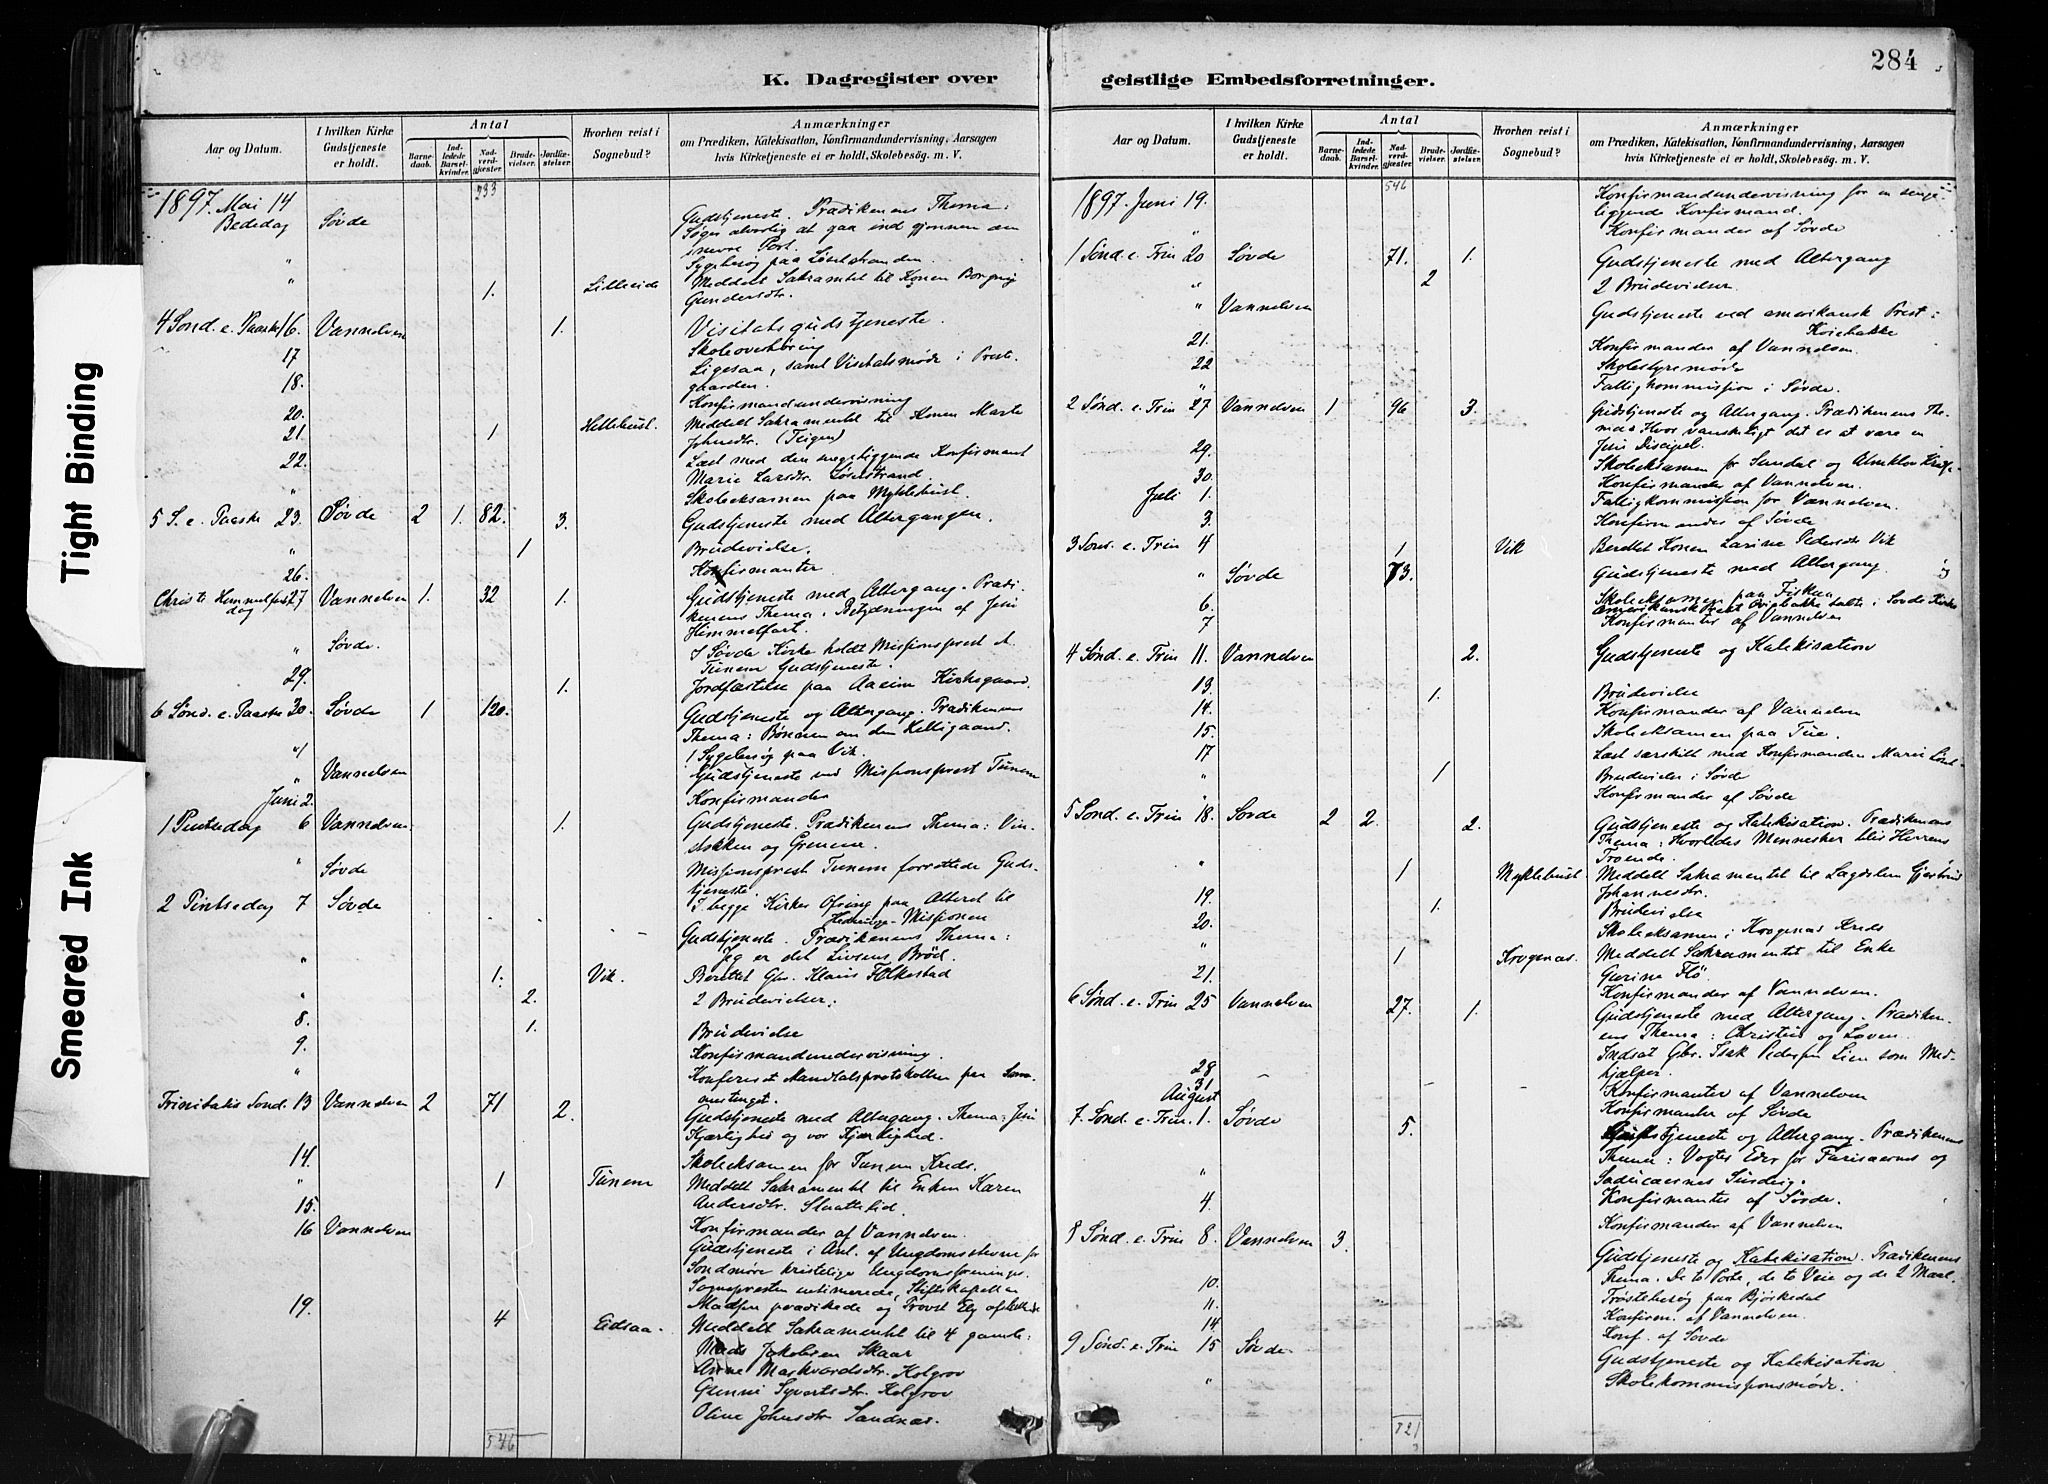 284
K. Dagregister over
geistlige Embedsforretninger.
Aar og Datum.
I hvilken Kirke Gudstjeneste er holdt.
Antal
Barnedaab.
Indledede Barselkvinder.
Nadverdgjester.
Brudevielser.
Jordfæstelser.
Hvorhen reist i Sognebud?
Anmærkninger
om Prædiken, Katekisation, Konfirmandundervisning, Aarsagen
hvis Kirketjeneste ei er holdt, Skolebesøg. m. V.
233
1897. Mai 14
Bededag Søvde Gudstjeneste. Prædikenens Thema:
Søger alvorlig at gaa ind gjennem den
snevre Port.
" Sygebesøg paa
" 1. Lilleeide Meddelt Sakramentet til Konen
Gundersdtr.
4 Sønd. e. Paaske 16. Vannelven 1. Visitatsgudstjeneste.
17 Skoleoverhøring
18. Ligesaa, samt Visitatsmøde i Prest-
gaarden.
20. Konfirmandundervisning
21. 1 Hellebust. Meddelt Sakramentet til Konen Marte
Johnsdtr. (Teigen)
22. Læst med den sengeliggende Konfirmant
Marie Larsdtr.
" Skoleeksamen paa Myklebust.
5 S. e. Paaske 23. Søvde 2 1. 82. 3. Gudstjeneste med Altergangen.
" 1 Brudevielse.
26. Konfirmanter
Christi Himmelfarts 27 Vannelven 1. 32 1. Gudstjeneste med Altergang. Prædi-
dag kenens Thema: Betydningen af Jesu
Himmelfart.
" Søvde. I Søvde Kirke holdt Missionsprest
Tunem Gudstjeneste.
29. 1. Jordfæstelse paa Aaeim Kirkegaard.
6 Sønd. e. Paaske 30. Søvde 1 120. Gudstjeneste og Altergang. Prædikenens
Thema: Bønnen om den Helligaand.
" 1 Sygebesøg paa Vik.
" Vannelven Gudstjeneste ved Missionsprest Tunem
Juni 2. Konfirmander
1 Pintsedag 6 Vannelven. 1. Gudstjeneste. Prædikenens Thema: Vin-
stokken og Grenene.
" Søvde Missionsprest Tunem forrettede Guds-
tjeneste.
2 Pintsedag 7 Søvde I begge Kirker Ofring paa Alteret til
Hedninge-Missionen
Gudstjeneste. Prædikenens Thema:
Jeg er det Livsens Brød.
" 1. Vik. Berettet Gbr. Klaus Folkestad
" 2. 2 Brudevielser:
8. 1. Brudevielse
9. Konfirmandundervisning.
" Konfereret Mandtalsprotokollen paa Som-
mertinget.
Trinitatis Sønd. 13 Vannelven 2 71 2. Gudstjeneste med Altergang. Thema: Jesu
Kjærlighed og vor Kjærlighed.
14. Skoleeksamen for Tunem Kreds.
" 1 Tunem Meddelt Sakramentet til Enken Karen
15. Andersdtr. Slaattelid.
Konfirmander af Vannelven.
16 Vannelven Gudstjeneste i Anl. af Ungdomsstevne for
Søndmøre kristelige Ungdomsforeninger.
Sognepresten intimerede, Stiftskapellan
Madsen prædikede og Provst
19. 4 Eidsaa. Meddelt Sakramentet til 4 gamle:
Mads Jakobsen Skaar
Anne Markvardsdtr. Holgrov
Gunni Syvertsdtr. Holgrov
Oline Johnsdtr Sandnæs.
546
Aar og Datum.
I hvilken Kirke Gudstjeneste er holdt.
Antal
Barnedaab.
Indledede Barselkvinder.
Nadverdgjester.
Brudevielser.
Jordfæstelser.
Hvorhen reist i Sognebud?
Anmærkninger
om Prædiken, Katekisation, Konfirmandundervisning, Aarsagen
hvis Kirketjeneste ei er holdt, Skolebesøg. m. V.
546
1897. Juni 19. Konfirmandundervisning for en senge-
liggende Konfirmand.
" Konfirmander af Søvde
1 Sønd. e. Trin 20 Søvde 71. 1. Gudstjeneste med Altergang
" 2 2 Brudevielser.
" Vannelven Gudstjeneste ved amerikansk Prest:
Kviebakke
21. Konfirmander af Vannelven.
22 Skolestyremøde
" Fattigkommission i Søvde.
2 Sønd. e. Trin 27 Vannelven 1 96 3. Gudstjeneste og Altergang. Prædikenens The-
ma: Hvor vanskeligt det er at være en
Jesu Discipel.
29. Skoleeksamen for Sundal og Almklov Kreds.
30. Konfirmander af Vannelven.
Juli 1. Fattigkommission for Vannelven.
3. Konfirmander af Søvde
3 Sønd. e. Trin 4 1 Vik Berettet Konen Larine Pedersdtr Vik
" Søvde 73. Gudstjeneste med Altergang.
6. Skoleeksamen paa Fiskaa
Amerikansk Prest Kviebakke talte i Søvde Kirke
7 Konfirmanter af Vannelven
4 Sønd. e. Trin 11. Vannelven 2. Gudstjeneste og Katekisation
13. 1. Brudevielse
14. Konfirmander af Vannelven
15. Skoleeksamen paa
17 Læst særskilt med Konfirmanden Marie
" 1 Brudevielse i Søvde
" Konfirmander af Søvde
5 Sønd. e. Trin 18. Søvde 2 2. 2. Gudstjeneste og Katekisation. Prædikenens
Thema: Hvorledes Mennesker blir Herrens
Troende.
" 1 Myklebust Meddelt Sakramentet til Lægdslem Gjertrud
Johannesdtr.
19. 1. Brudevielse
20. Skoleeksamen i Krogenæs Kreds
" 1 Krogenæs. Meddelt Sakramentet til Enke
Gurine Flö
21. Konfirmander af Vannelven.
6 Sønd. e. Trin 25 Vannelven 27. 1. Gudstjeneste med Altergang. Prædiken-
ens Thema: Christus og Loven.
Indsat Gbr. Isak Pedersen Lien som Med-
hjælper.
28 Konfirmanter af Vannelven
31 Konfirmanter af Søvde
August
7. Sønd. e. Trin. 1. Søvde 5. Gudstjeneste og Altergang. Prædikenens
Thema: Vogter Eder for Farisæernes og
Saducæernes Surdeig.
" Konfirmanter af Søvde.
4. Konfirmander af Vannelven
8 Sønd. e. Trin 8. Vannelven 3. Gudstjeneste og Katekisation. Prædikenens
Thema. De to Porte, de to Veie og de 2 Maal.
10. Trøstebesøg paa Bjørkedal
11. Konfirm. af Vannelven.
14. Konf. af Søvde
9 Sønd. e. Trin 15 Søvde Gudstjeneste og Katekisation
" Skolekommissionsmøde.
821
Tight Binding
Smeared Ink